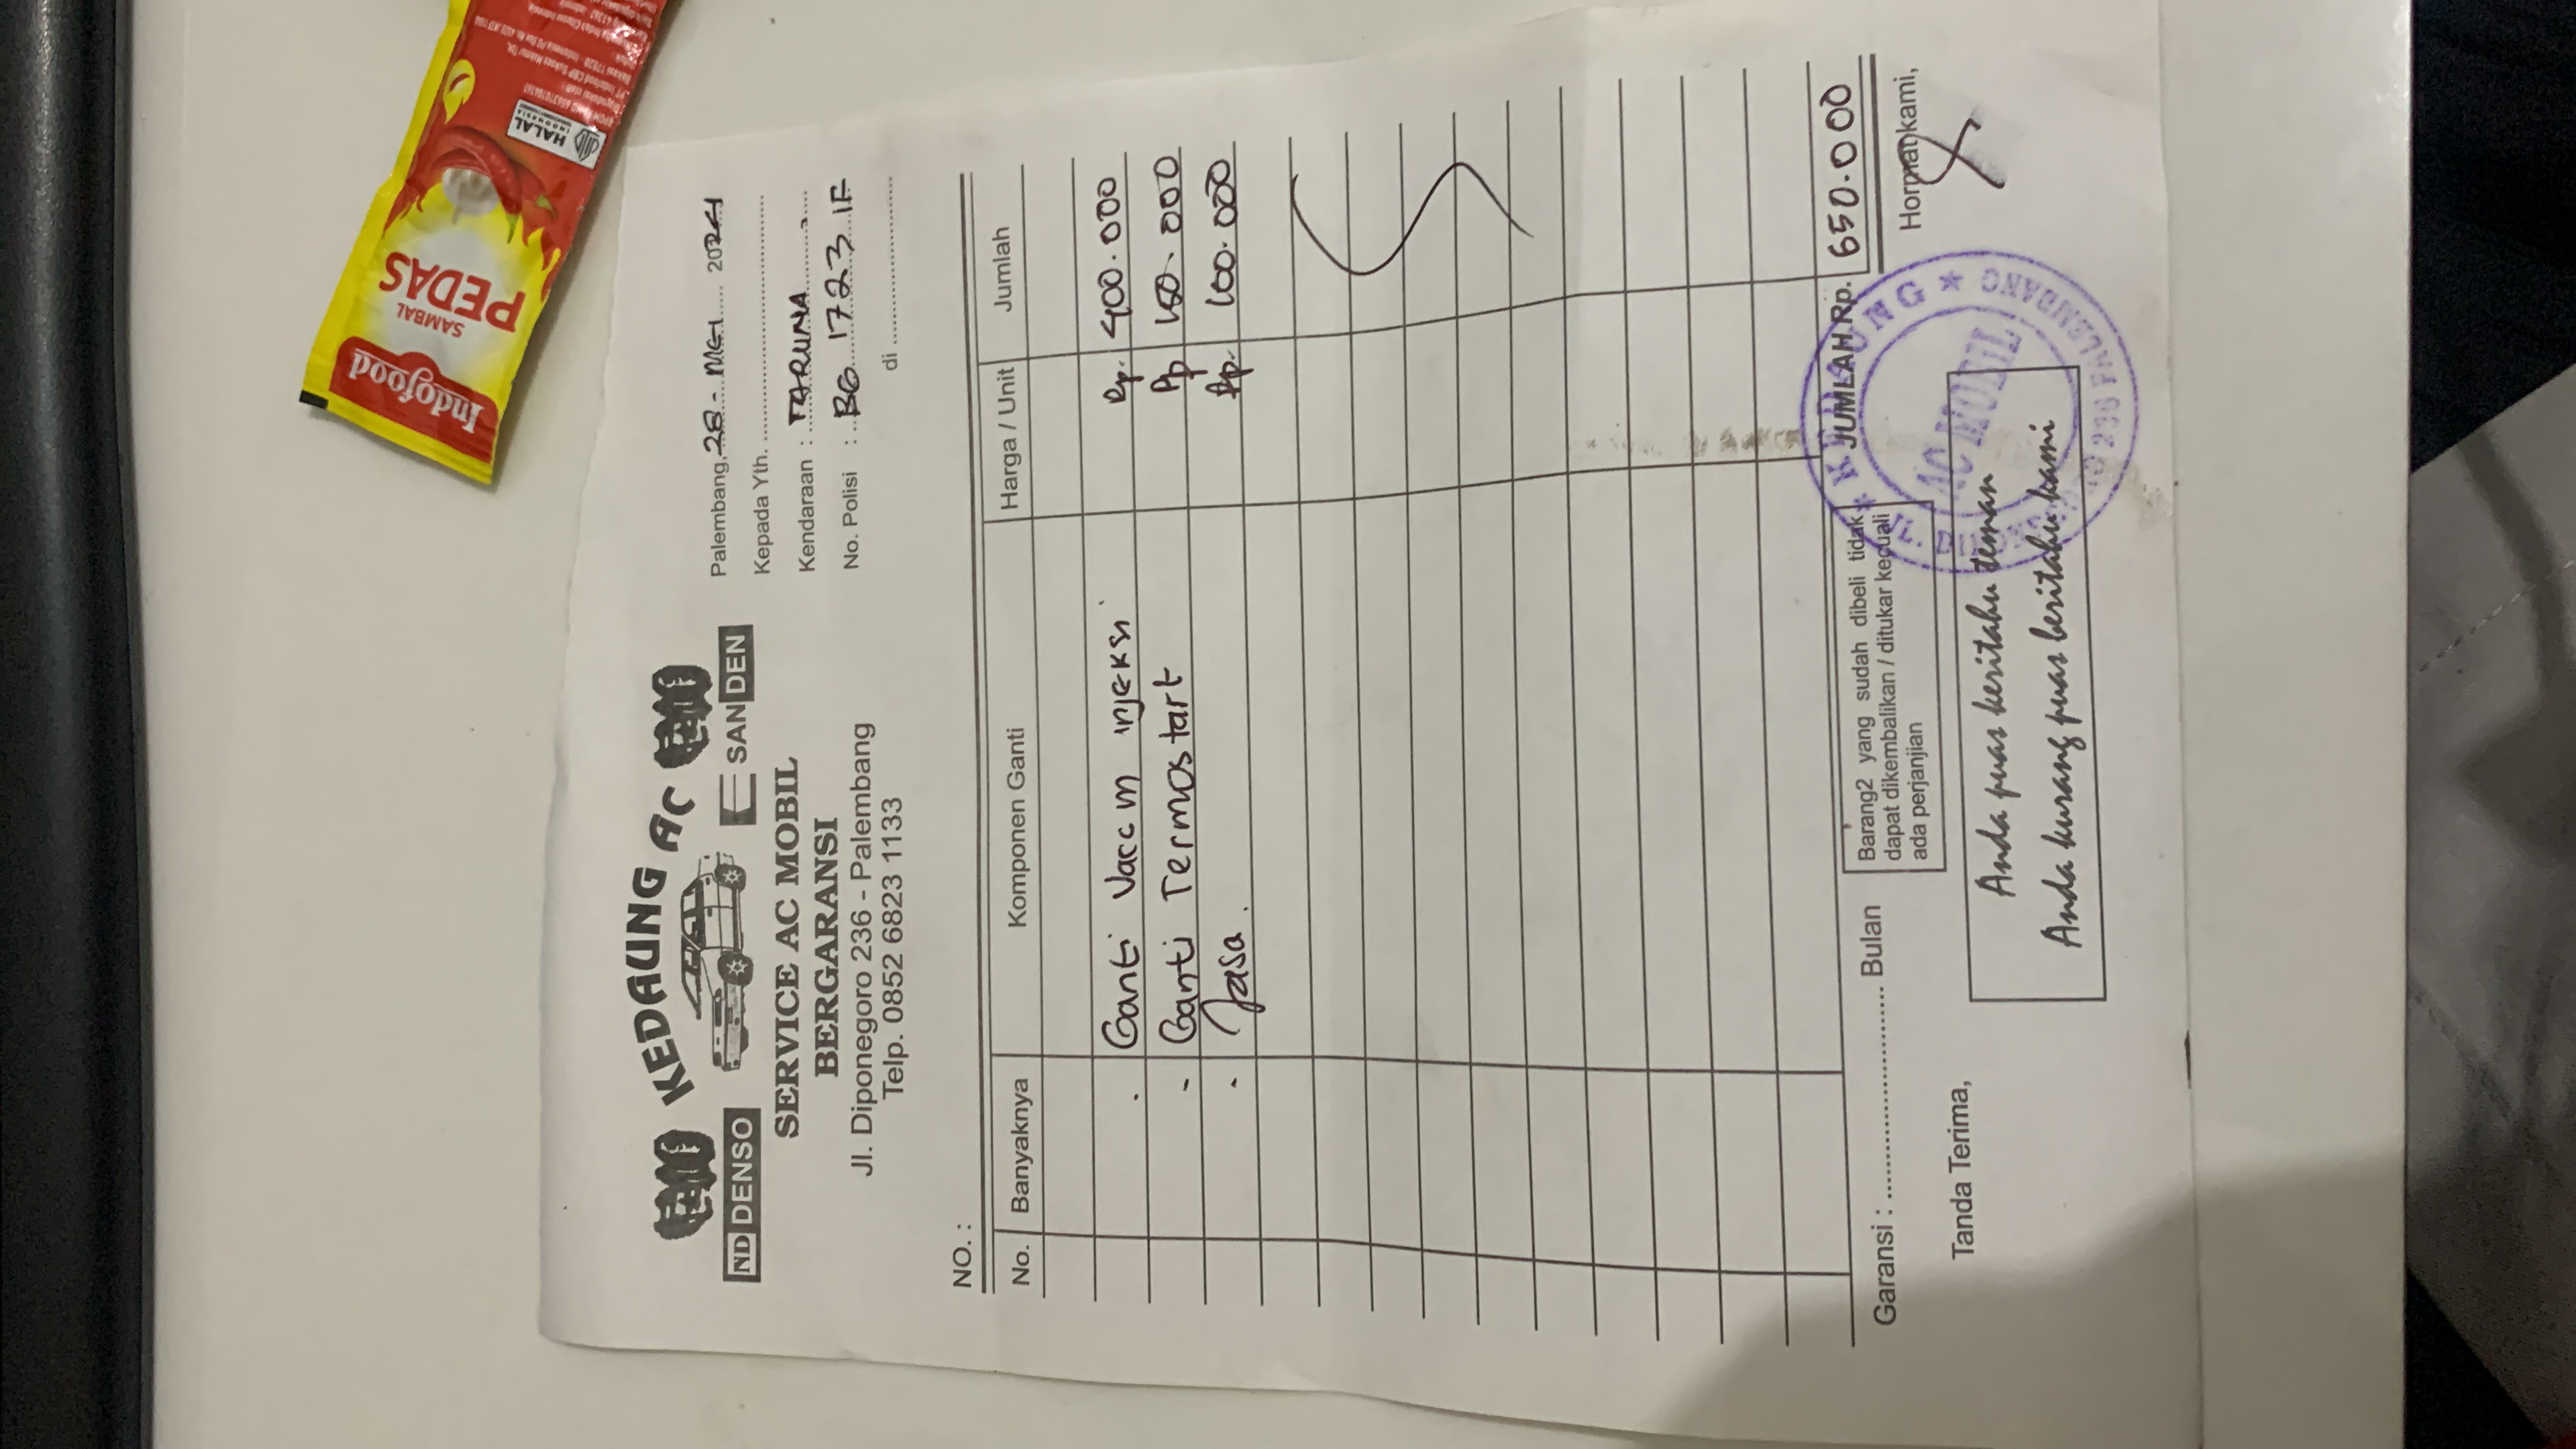 Indofood
SAMBAL
PEDAS
HALAL
INDONESIA
KEDAUNG AC
ND DENSO
SANDEN
SERVICE AC MOBIL
BERGARANSI
Jl. Diponegoro 236 - Palembang
Telp. 0852 6823 1133
Palembang, 28 - MEI 2024
Kepada Yth.
Kendaraan : TARUNA
No. Polisi : BG 1723 IF
di
NO. :
No. Banyaknya Komponen Ganti Harga / Unit Jumlah
Ganti Vaccm injeksi Rp. 400.000
- Ganti Termostart Rp 150.000
- Jasa. Rp. 100.000
JUMLAH Rp. 650.000
Garansi : Bulan
Barang2 yang sudah dibeli tidak
dapat dikembalikan / ditukar kecuali
ada perjanjian
Hormat kami,
Tanda Terima,
Anda puas keritahu teman
Anda kurang puas beritahu kami
KEDAUNG
AC MOBIL
JL. DIPONEGORO 236 PALEMBANG